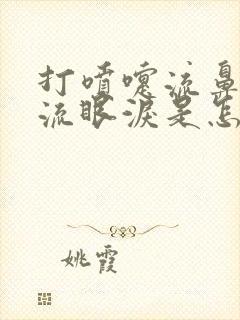 打喷嚏流鼻
流眼泪是怎
姚霞